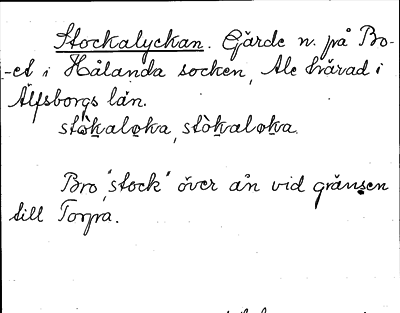 Stockalyckan. Gärde n. på Bo-
-et i Hålanda socken, Ale härad i
Älfsborgs län.
stòkaløka, stòkaløka.
Bro "stock" över ån vid gränsen
till Torpa.